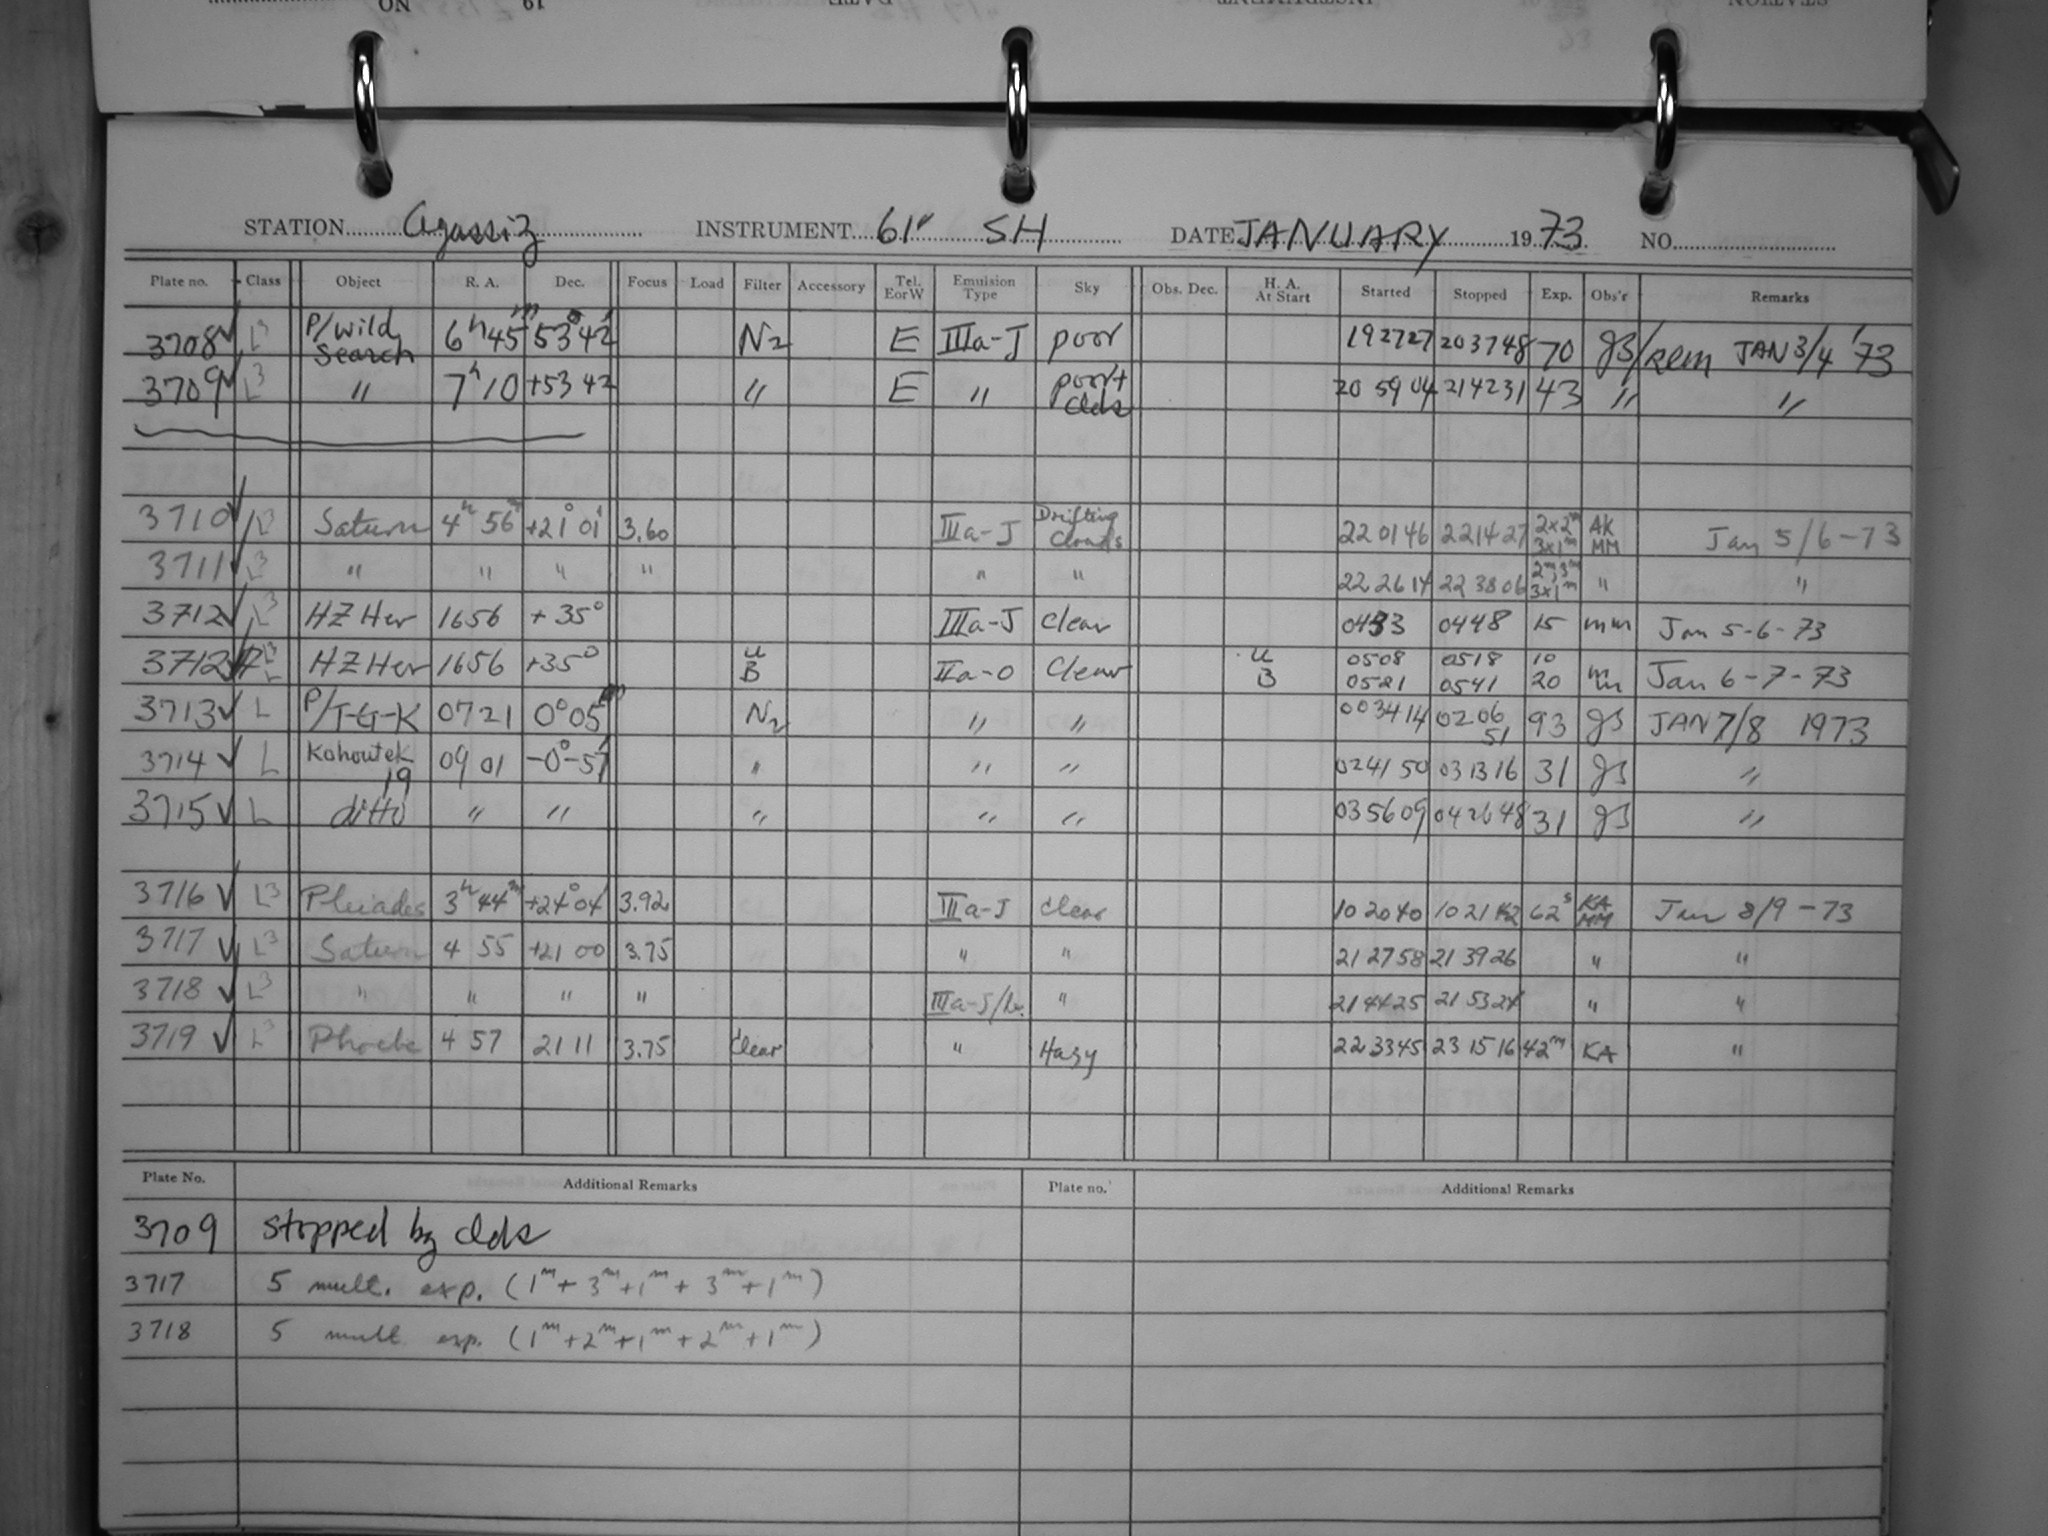 STATION Agassiz INSTRUMENT 61" SH DATE JANUARY 1973 NO.
Plate no. Class Object R. A. Dec. Focus Load Filter Accessory Tel. E or W Emulsion Type Sky Obs. Dec. H. A. At Start Started Stopped Exp. Obs'r Remarks
3708 L3 P/Wild Search 6h45m 53°42' N2 E IIIa-J poor 192727 203748 70 JB/REM JAN 3/4 '73
3709 L3 " 7h10 +53 42 " E " poor+ clds 20 59 04 214231 43 " "
3710 L3 Saturn 4h 56m +21° 01' 3.60 IIIa-J Drifting Clouds 22 01 46 221427 2x2m 3x1m AK MM Jan 5/6-73
3711 L3 " " " " " " 22 26 14 22 38 06 3x1m " "
3712 L3 HZ Her 1656 +35° IIIa-J Clear 0433 0448 15 mm Jan 5-6-73
3712 HZ Her 1656 +35° U B IIa-O Clear U B 0508 0521 0518 0541 10 20 mm Jan 6-7-73
3713 L P/T-G-K 07 21 0°05' N2 " " 003414 0206 51 93 JB JAN 7/8 1973
3714 L Kohoutek 19 09 01 -0°-57' " " " 0241 50 03 13 16 31 JB "
3715 L ditto " " " " " 035609 042648 31 JB "
3716 L3 Pleiades 3h 44m +24° 04 3.92 IIIa-J clear 10 20 40 10 21 42 62s KA MM Jan 8/9-73
3717 L3 Saturn 4 55 +21 00 3.75 " " 21 27 58 21 39 26 " "
3718 L3 " " " " IIIa-J/ " 21 44 25 21 53 24 " "
3719 L3 Phoebe 4 57 21 11 3.75 clear " Hazy 22 33 45 23 15 16 42m KA "
Plate No. Additional Remarks Plate no. Additional Remarks
3709 stopped by clds
3717 5 mult. exp. (1m + 3m + 1m + 3m + 1m)
3718 5 mult exp. (1m + 2m + 1m + 2m + 1m)